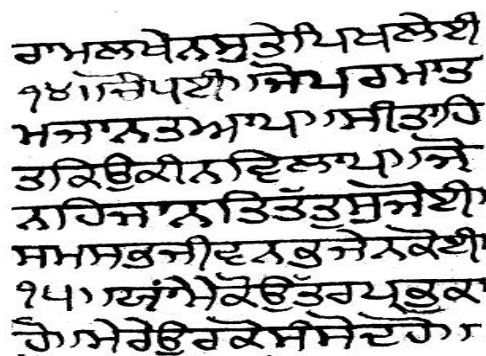 ਰਾਮਲਖੇਨਸੁਤੇਪਿਖਲੇਈ
੧੪॥ਚੌਪਈ॥ਜੇਪਰਮਾਤ
ਮਜਾਨਤਆਪ॥ਸੀਤਾਹਿ
ਤਕਿਉਕੀਨਵਿਲਾਪ॥ਜੇ
ਨਹਿਜਾਨਤਿਤੱਤੁਸੁਜੋਈ
ਸਮਸਭਜੀਵਨਭਜੇਨਕੋਈ
੧੫॥ਯਾਂਮੈਕੋਉੱਤਰਪ੍ਰਭੁਕ
ਹੋ॥ਮੇਰੇਉਰਕੋਸੰਸੋਦਹੋ॥